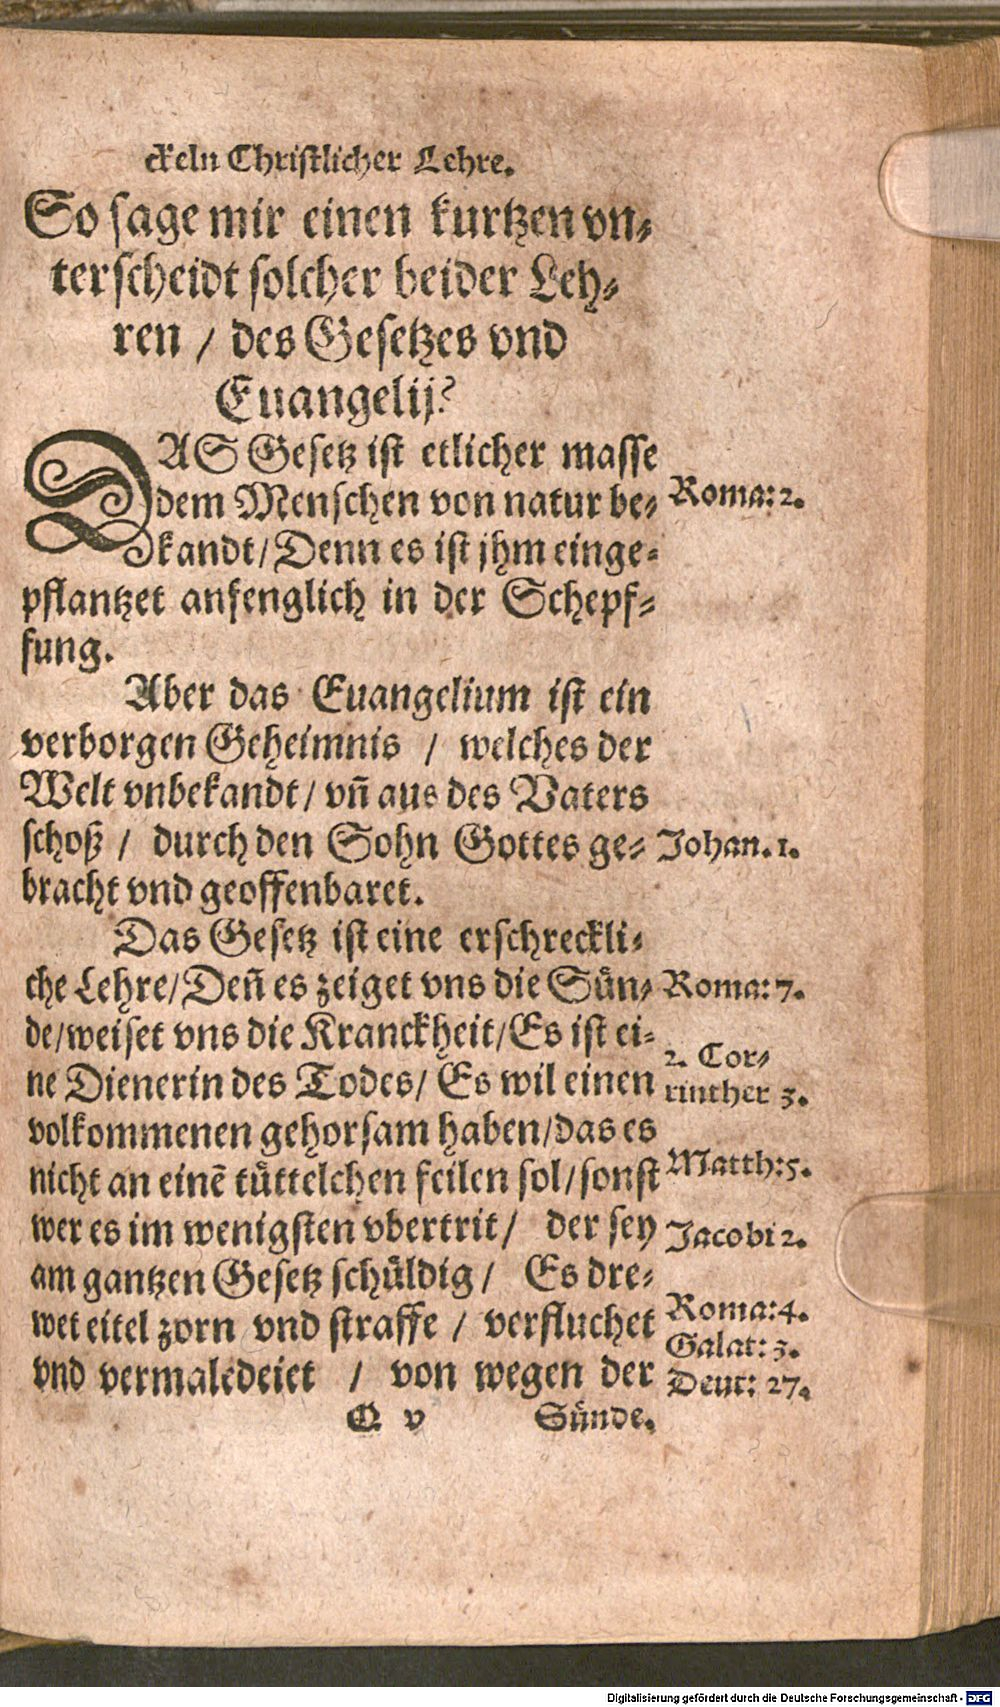 ckeln Christlicher Lehre.
So sage mir einen kurtzen vn⸗
terscheidt solcher beider Leh⸗
ren / des Gesetzes vnd
Euangelij?
DAS Gesetz ist etlicher masse
dem Menschen von natur be⸗ Roma: 2.
kandt / Denn es ist jhm einge⸗
pflantzet anfenglich in der Schepf⸗
fung.
Aber das Euangelium ist ein
verborgen Geheimnis / welches der
Welt vnbekandt / vñ aus des Vaters
schoß / durch den Sohn Gottes ge⸗ Johan. 1.
bracht vnd geoffenbaret.
Das Gesetz ist eine erschreckli⸗
che Lehre / Deñ es zeiget vns die Sün⸗ Roma: 7.
de / weiset vns die Kranckheit / Es ist ei⸗
2. Cor⸗
ne Dienerin des Todes / Es wil einen rinther 3.
volkommenen gehorsam haben / das es
nicht an einẽ tüttelchen feilen sol / sonst Matth: 5.
wer es im wenigsten vbertrit / der sey Jacobi 2.
am gantzen Gesetz schüldig / Es dre⸗
wet eitel zorn vnd straffe / verfluchet Roma: 4.
Galat: 3.
vnd vermaledeiet / von wegen der Deut: 27.
Q v Sünde.
Digitalisierung gefördert durch die Deutsche Forschungsgemeinschaft - DFG